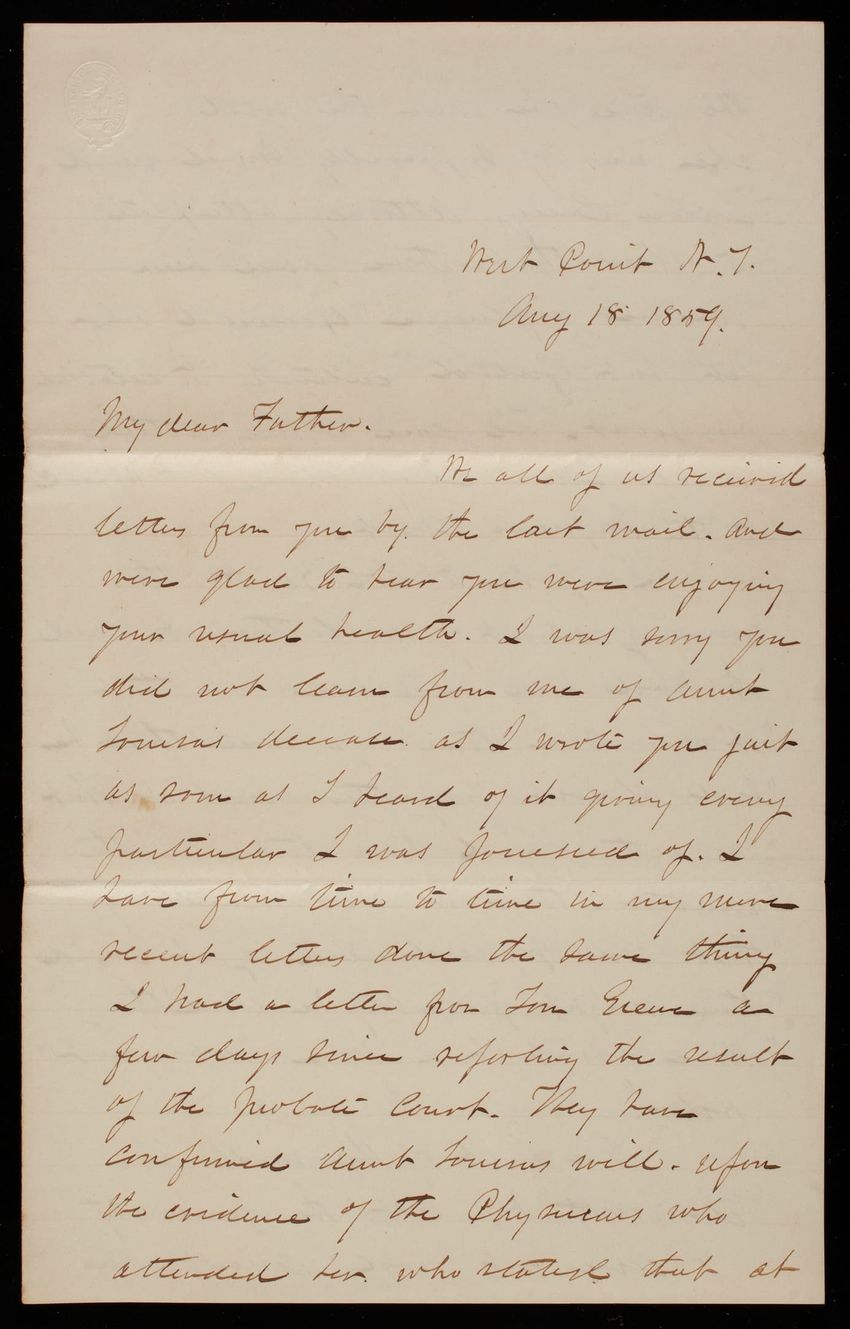 West Point N.Y.
Aug 18 1859.
My dear Father.
We all of us received
letters from you by the last mail. And
were glad to hear you were enjoying
your usual health. I was sorry you
did not learn from me of Aunt
Louisas decease as I wrote you just
as soon as I heard of it giving every
particular I was possessed of. I
have from time to time in my more
recent letters done the same thing
I had a letter from Tom a
few days since reporting the result
of the probate Court. They have
confirmed Aunt Louisas will. upon
the evidence of the Physicians who
attended her. who stated that at